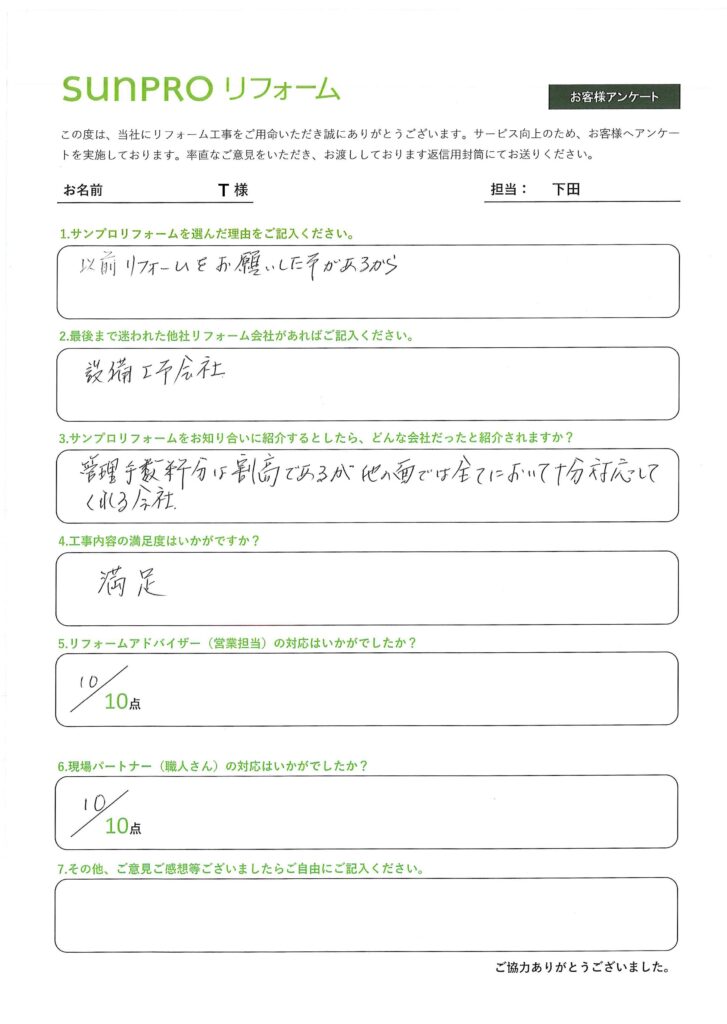 SUNPRO リフォーム
お客様アンケート
この度は、当社にリフォーム工事をご用命いただき誠にありがとうございます。サービス向上のため、お客様へアンケー
トを実施しております。率直なご意見をいただき、お渡ししております返信用封筒にてお送りください。
お名前 T 様 担当： 下田
1.サンプロリフォームを選んだ理由をご記入ください。
以前リフォームをお願いした事があるから
2.最後まで迷われた他社リフォーム会社があればご記入ください。
設備工事会社
3.サンプロリフォームをお知り合いに紹介するとしたら、どんな会社だったと紹介されますか？
管理手数料分は割高であるが他の面では全てにおいて十分対応して
くれる会社.
4.工事内容の満足度はいかがですか？
満足
5.リフォームアドバイザー（営業担当）の対応はいかがでしたか？
10/10点
6.現場パートナー（職人さん）の対応はいかがでしたか？
10/10点
7.その他、ご意見ご感想等ございましたらご自由にご記入ください。
ご協力ありがとうございました。